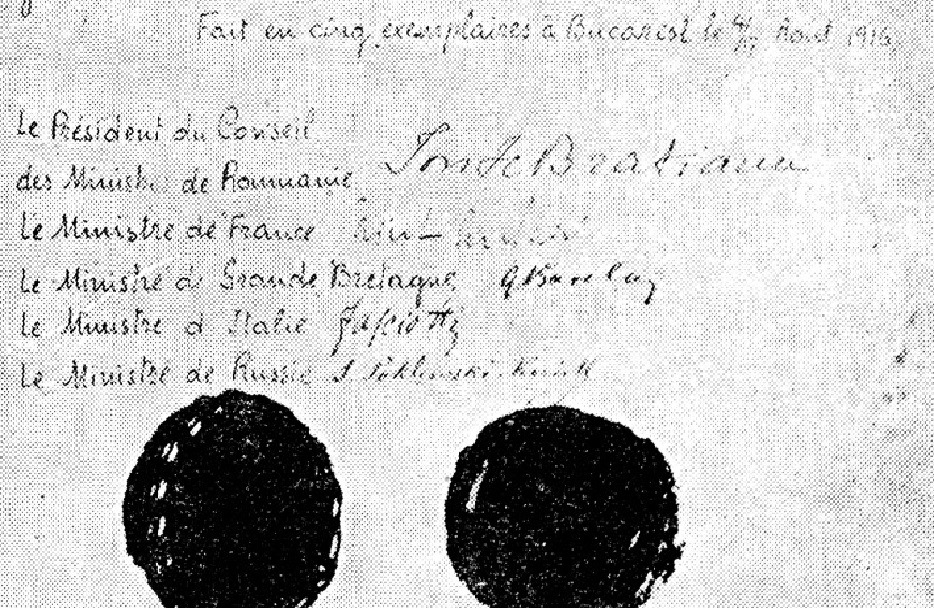 Fait en cinq exemplaires à Bucarest le 4/17 Août 1916.
Le Président du Conseil
des Ministres de Roumanie Ion I C Bratianu
Le Ministre de France
Le Ministre de Grande Bretagne G Barclay
Le Ministre d'Italie Fasciotti
Le Ministre de Russie S Poklewski-Koziell